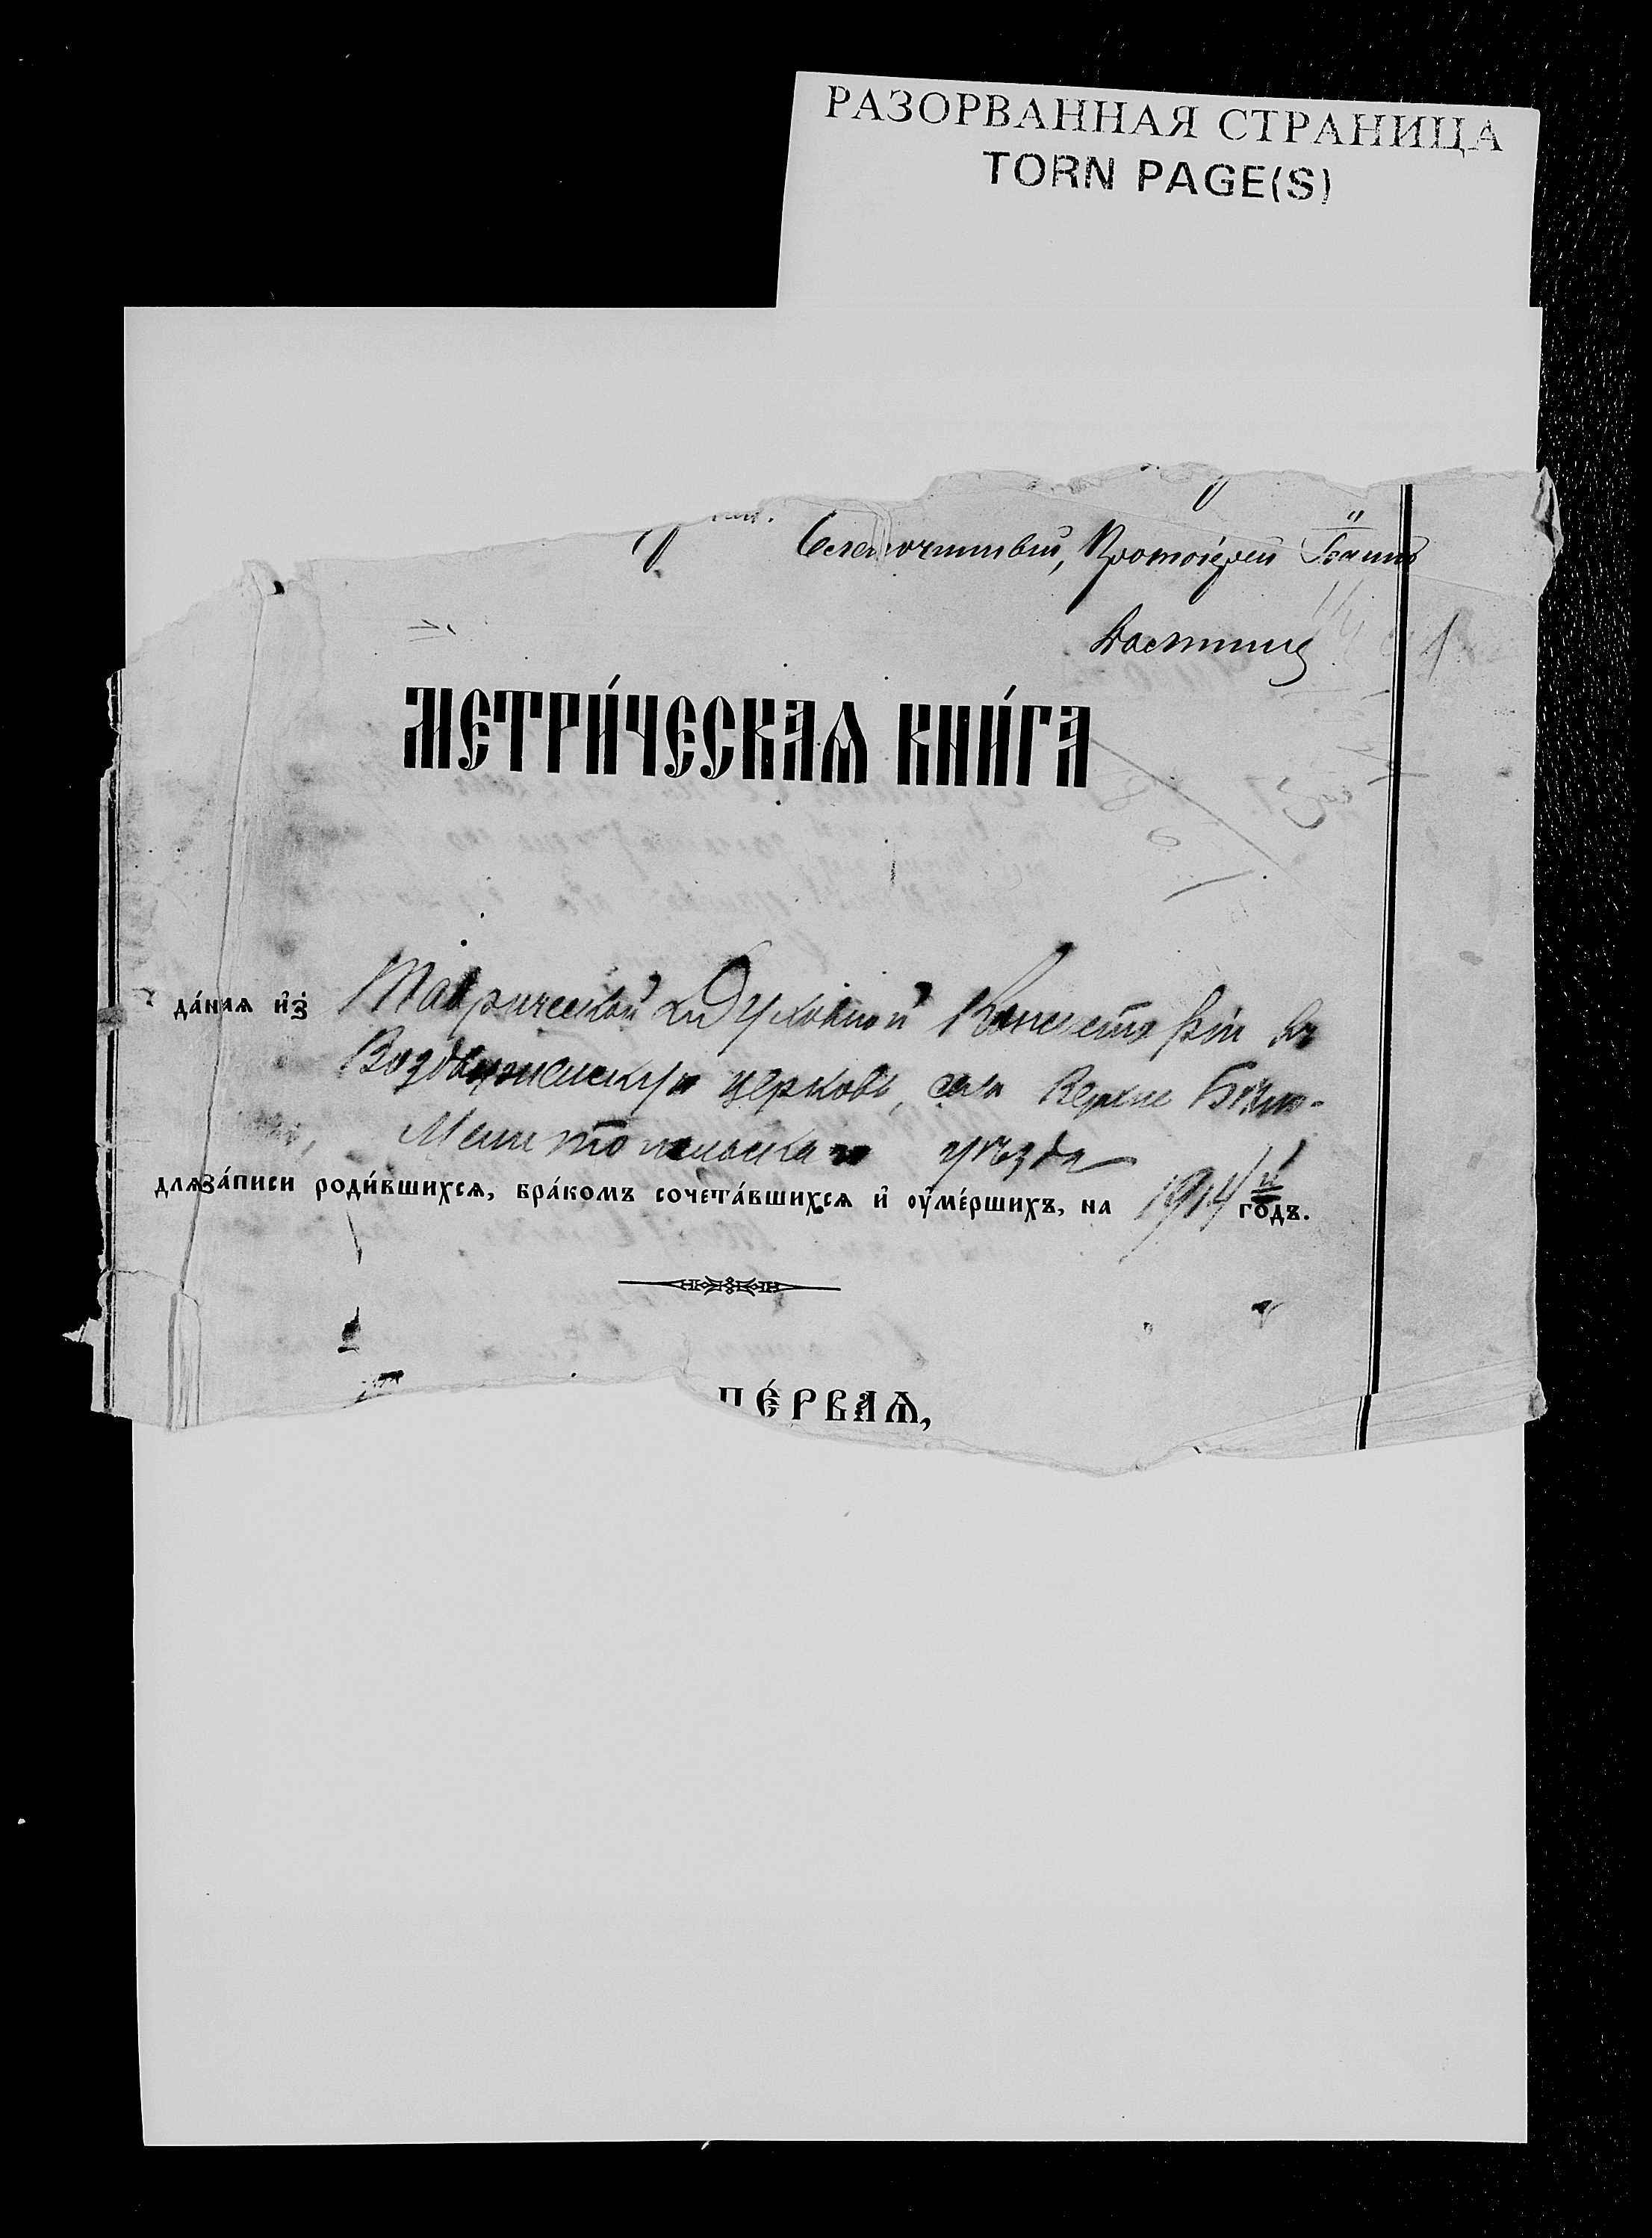 РАЗОРВАННАЯ СТРАНИЦА
TORN PAGE(S)
Благочинный, Протоіерей Іоаннъ
1
МЕТРИ́ЧЕСКАѦ КНИ́ГА
да́наѧ и҆з̾ Таврической Духовной Консисторіи въ
Воздвиженскую церковь, села Верхне
Мелитопольскаго уѣзда
длѧ за́писи роди́вшихсѧ, бра́комъ сочета́вшихсѧ и҆ оу҆ме́ршихъ, на 1914 й го́дъ.
ПЕ́РВАѦ,